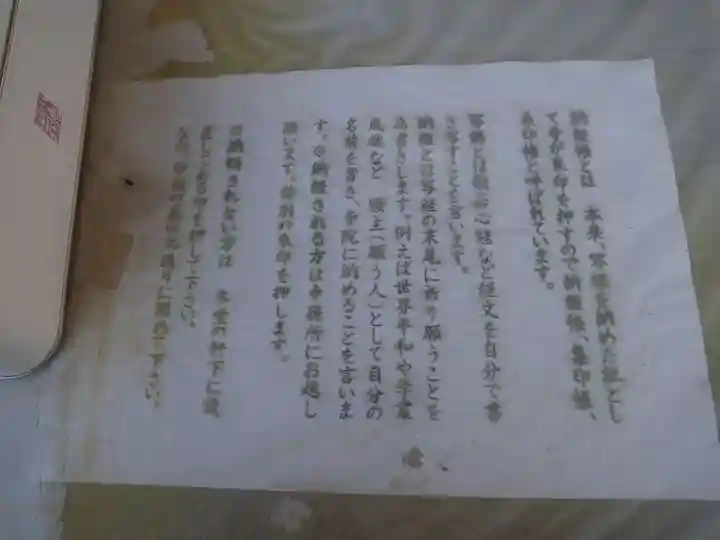 納経帳とは 本来、写経を納めた証とし
て寺が朱印を押すので納経帳、集印帳、
朱印帳と呼ばれています。
写経とは般若心経など経文を自分で書
き写すことを言います。
納経とは写経の末尾に祈り願うことを
為書きします。例えば世界平和や
成就など 願主(願う人)として自分の
名前を書き、寺院に納めることを言いま
す。※納経される方は寺務所にお越し
願います。特別の朱印を押します。
※納経されない方は 本堂の
ある印を押して下さい。
下さい。